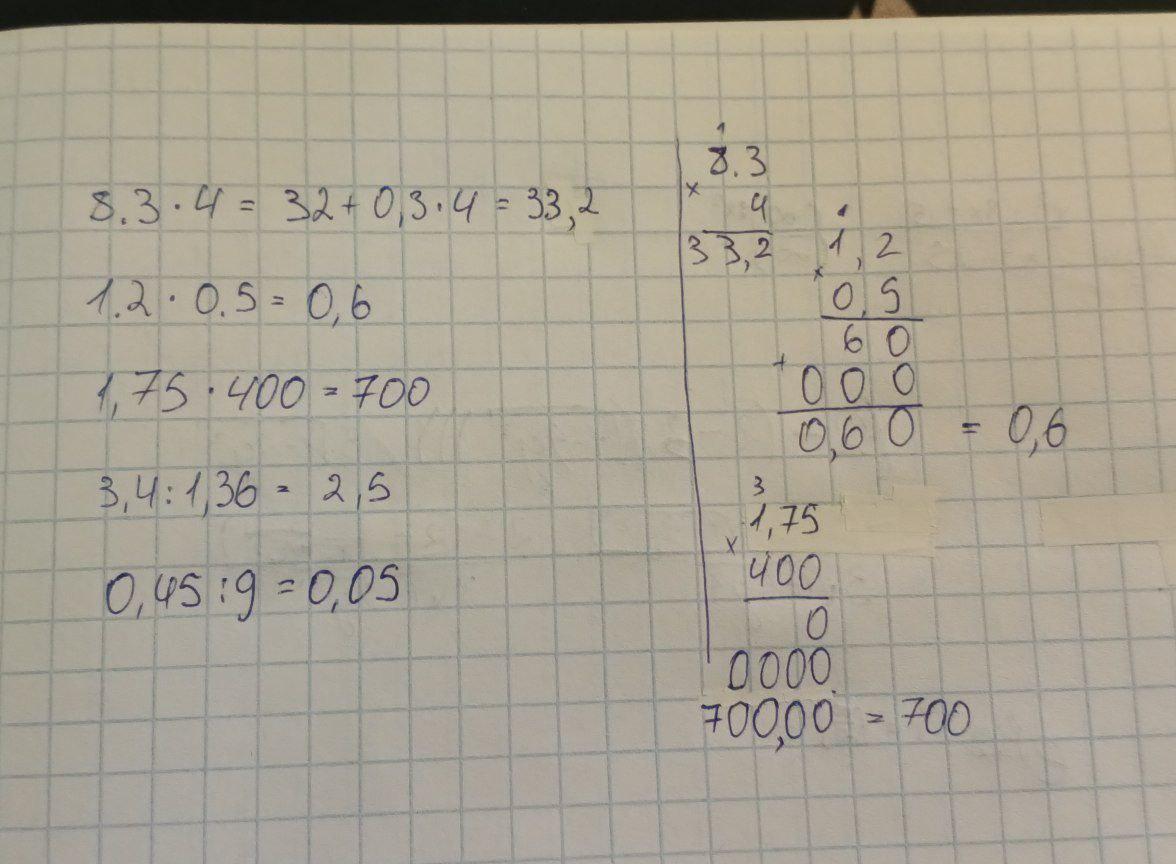 8.3 · 4 = 32 + 0,3 · 4 = 33,2
1.2 · 0.5 = 0,6
1,75 · 400 = 700
3,4 : 1,36 = 2,5
0,45 : 9 = 0,05
1
8.3
× 4
33,2
1
1,2
× 0,5
60
+ 000
0,60 = 0,6
3
1,75
× 400
0
0000
700,00 = 700